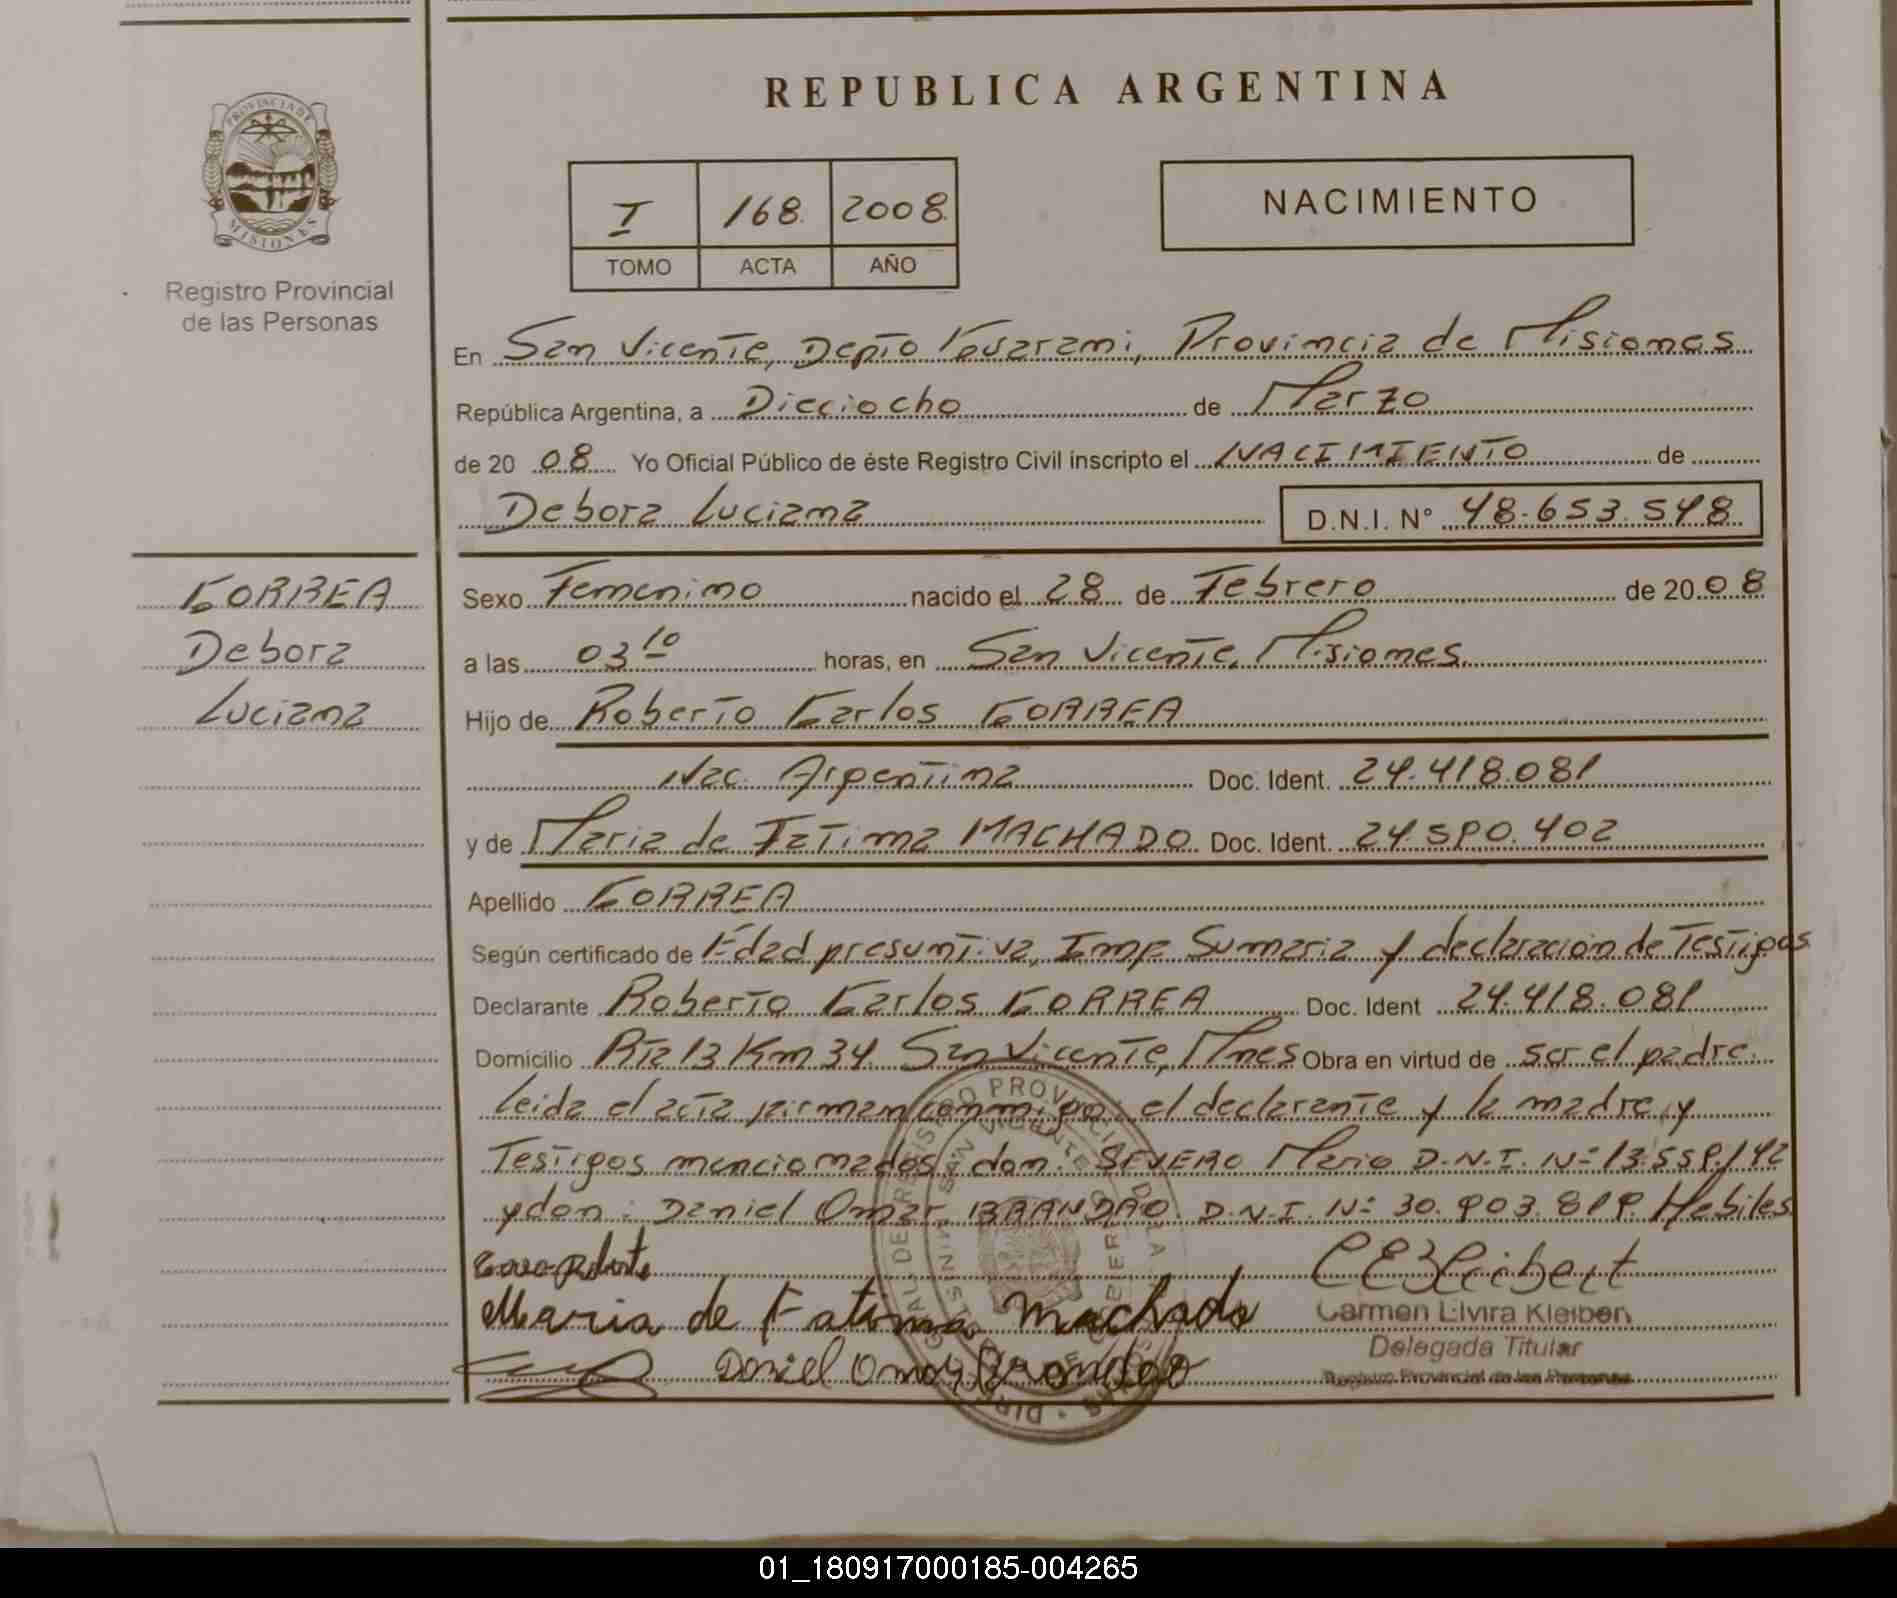 REPUBLICA ARGENTINA
PROVINCIA DE
MISIONES
Registro Provincial
de las Personas
I 168. 2008.
TOMO ACTA AÑO
NACIMIENTO
En San Vicente, Depto Guarani, Provincia de Misiones
República Argentina, a Dieciocho de Marzo
de 20 08 Yo Oficial Público de éste Registro Civil inscripto el NACIMIENTO de
Debora Luciana D.N.I. N° 48.653.548
CORREA
Debora
Luciana
Sexo Femenino nacido el 28 de Febrero de 20 08
a las 03 10 horas, en San Vicente, Misiones
Hijo de Roberto Carlos CORREA
Nac. Argentina Doc. Ident. 24.418.081
y de Maria de Fatima MACHADO Doc. Ident. 24.590.402
Apellido CORREA
Según certificado de Edad presuntiva, Sumaria y declaración de Testigos
Declarante Roberto Carlos CORREA Doc. Ident 24.418.081
Domicilio Rta 13 Km 34 San Vicente, Mnes Obra en virtud de ser el padre.
Leida el acta firman conmigo: el declarante y la madre, y
Testigos mencionados, don: SEVERO Mario D.N.I. Nº 13.559.142
y don: Daniel Omar BRANDAO D.N.I. Nº 30.903.819 Habiles
Maria de Fatima Machado
Daniel Omar Brandao
Carmen Elvira Kleibert
Delegada Titular
Registro Provincial de las Personas
01_180917000185-004265